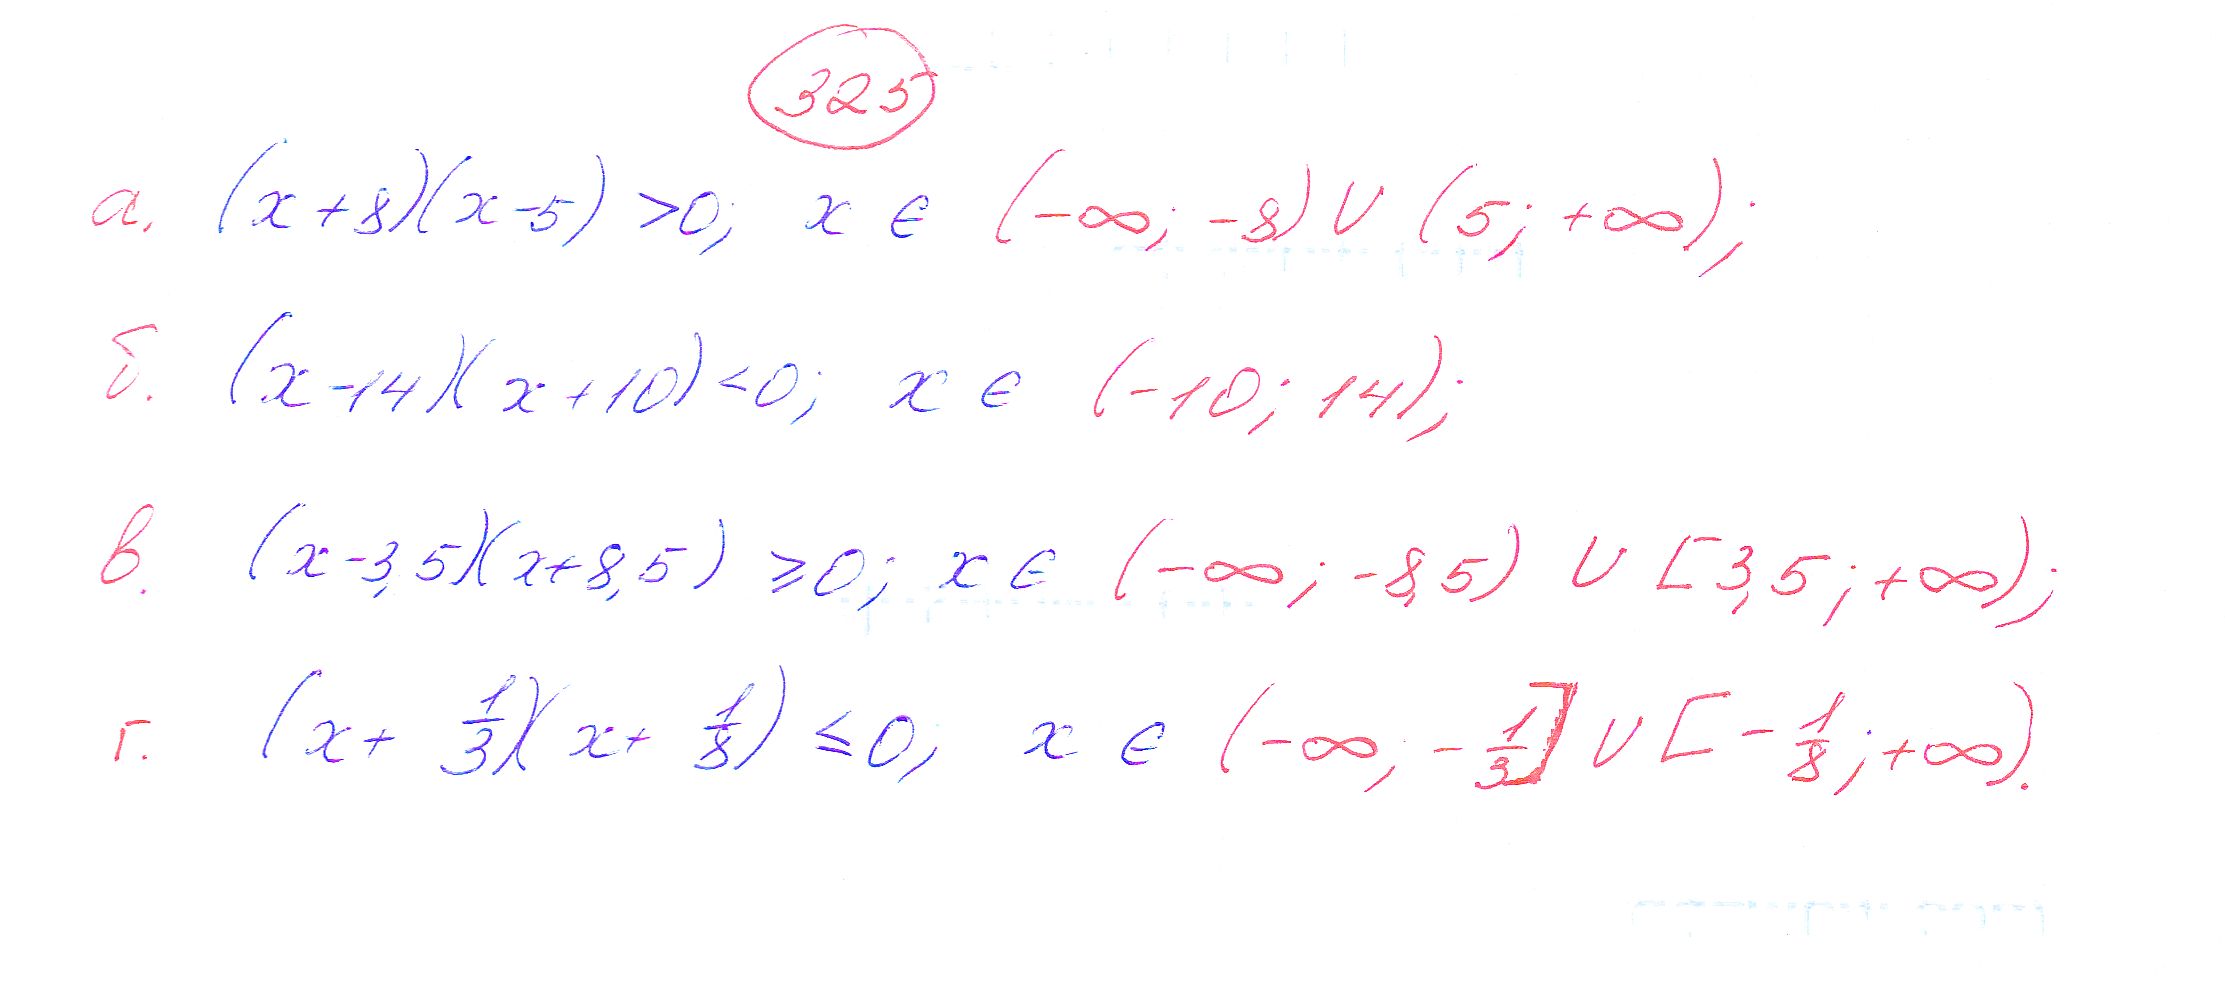 325
а. (x+8)(x-5) >0; x ∈ (-∞; -8) ∪ (5; +∞);
б. (x-14)(x+10)<0; x ∈ (-10; 14);
в. (x-3,5)(x+8,5) ≥0; x ∈ (-∞; -8,5) ∪ [3,5; +∞);
г. (x+ 1/3)(x+ 1/8) ≤0; x ∈ (-∞; -1/3] ∪ [-1/8; +∞).